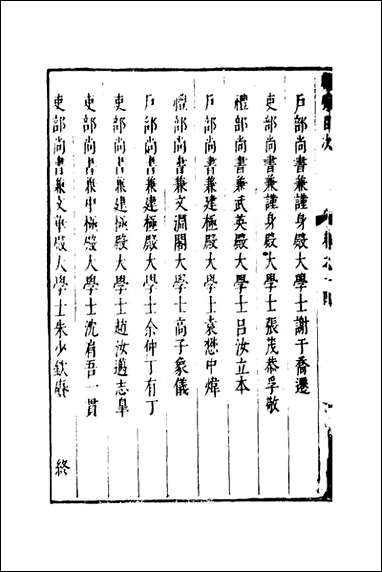 目次
戶部尚書兼謹身殿大學士謝于喬遷
吏部尚書兼謹身殿大學士張茂恭孚敬
禮部尚書兼武英殿大學士呂汝立本
戶部尚書兼建極殿大學士袁懋中煒
禮部尚書兼文淵閣大學士高子象儀
戶部尚書兼建極殿大學士余仲丁有丁
吏部尚書兼建極殿大學士趙汝邁志皐
吏部尚書兼中極殿大學士沈肩吾一貫
吏部尚書兼文華殿大學士朱少欽賡 終